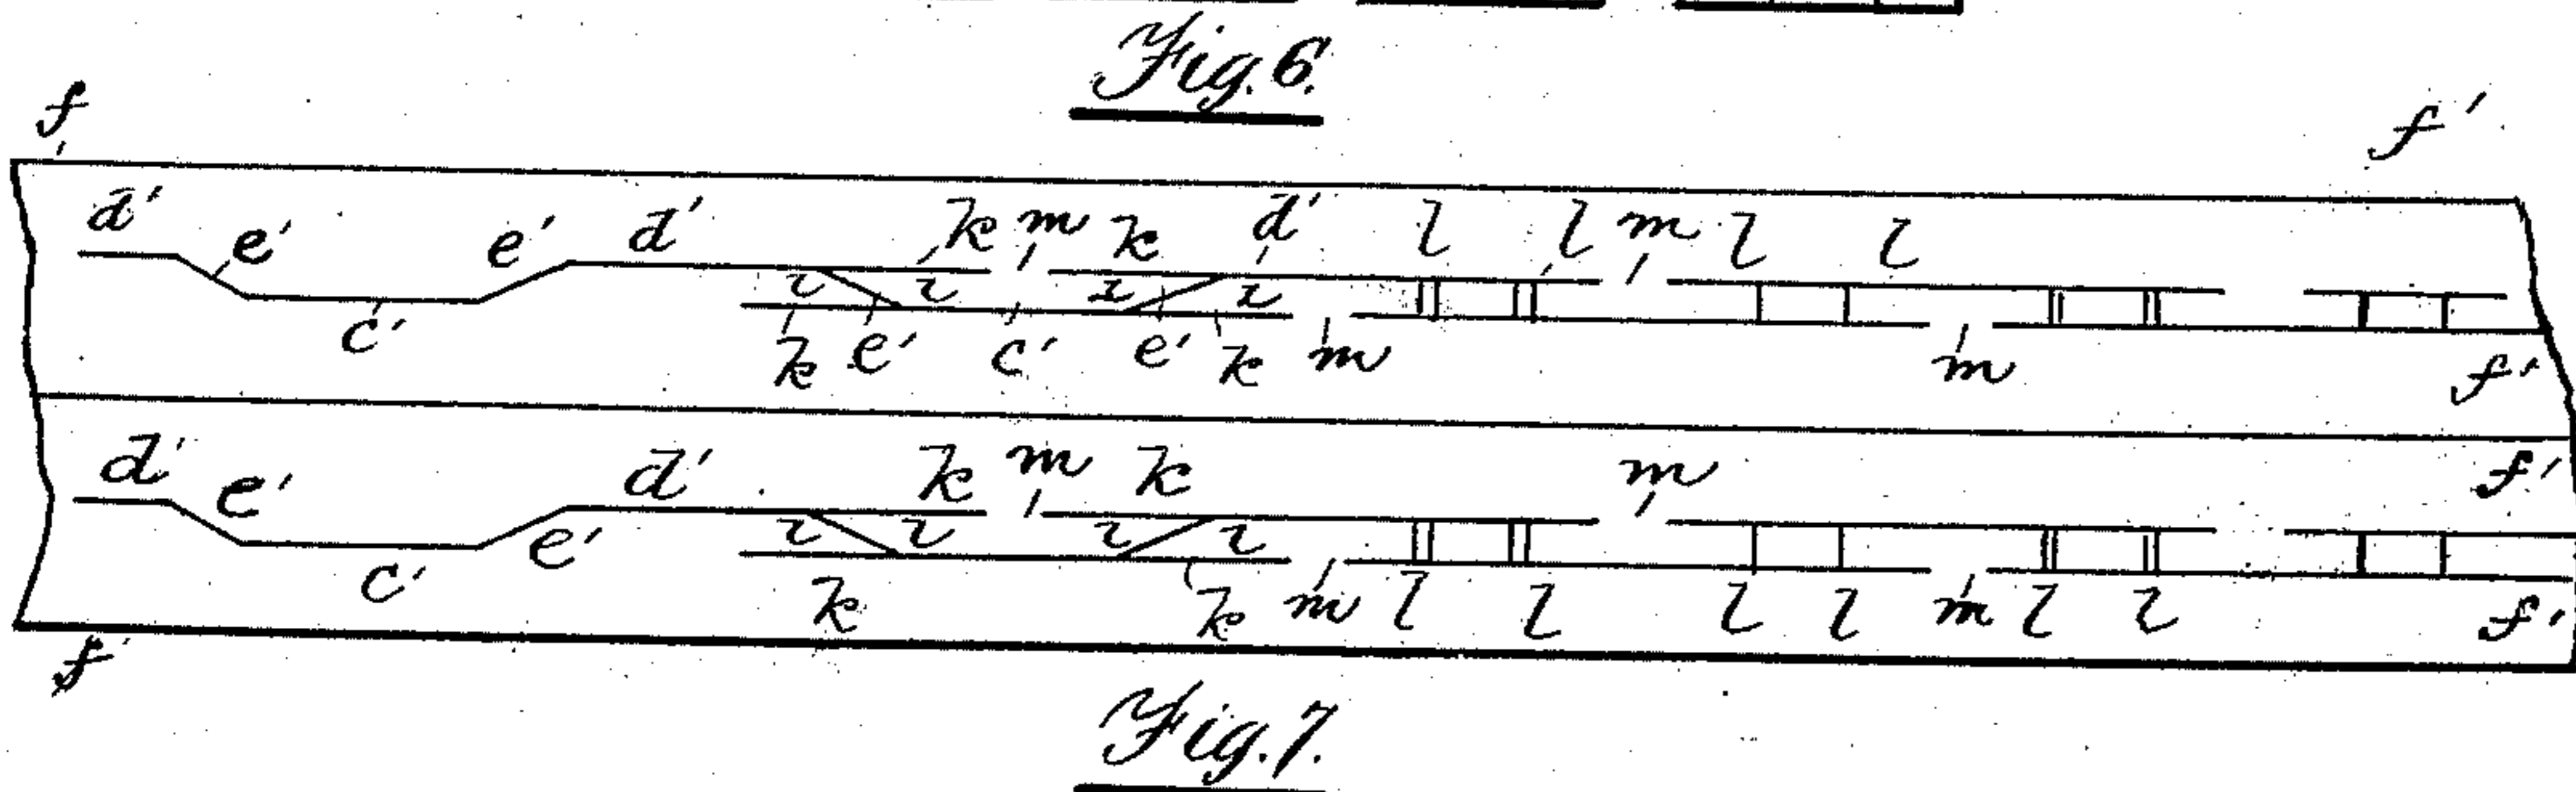 Fig. 6.
f f'
d' e' e' d' k m k d' l l m l l
i i i i
c' k e' c' e' k m m f'
d' e' d' k m k m f'
i i i i
c' e' k k m l l l l m l l f'
f
Fig. 7.